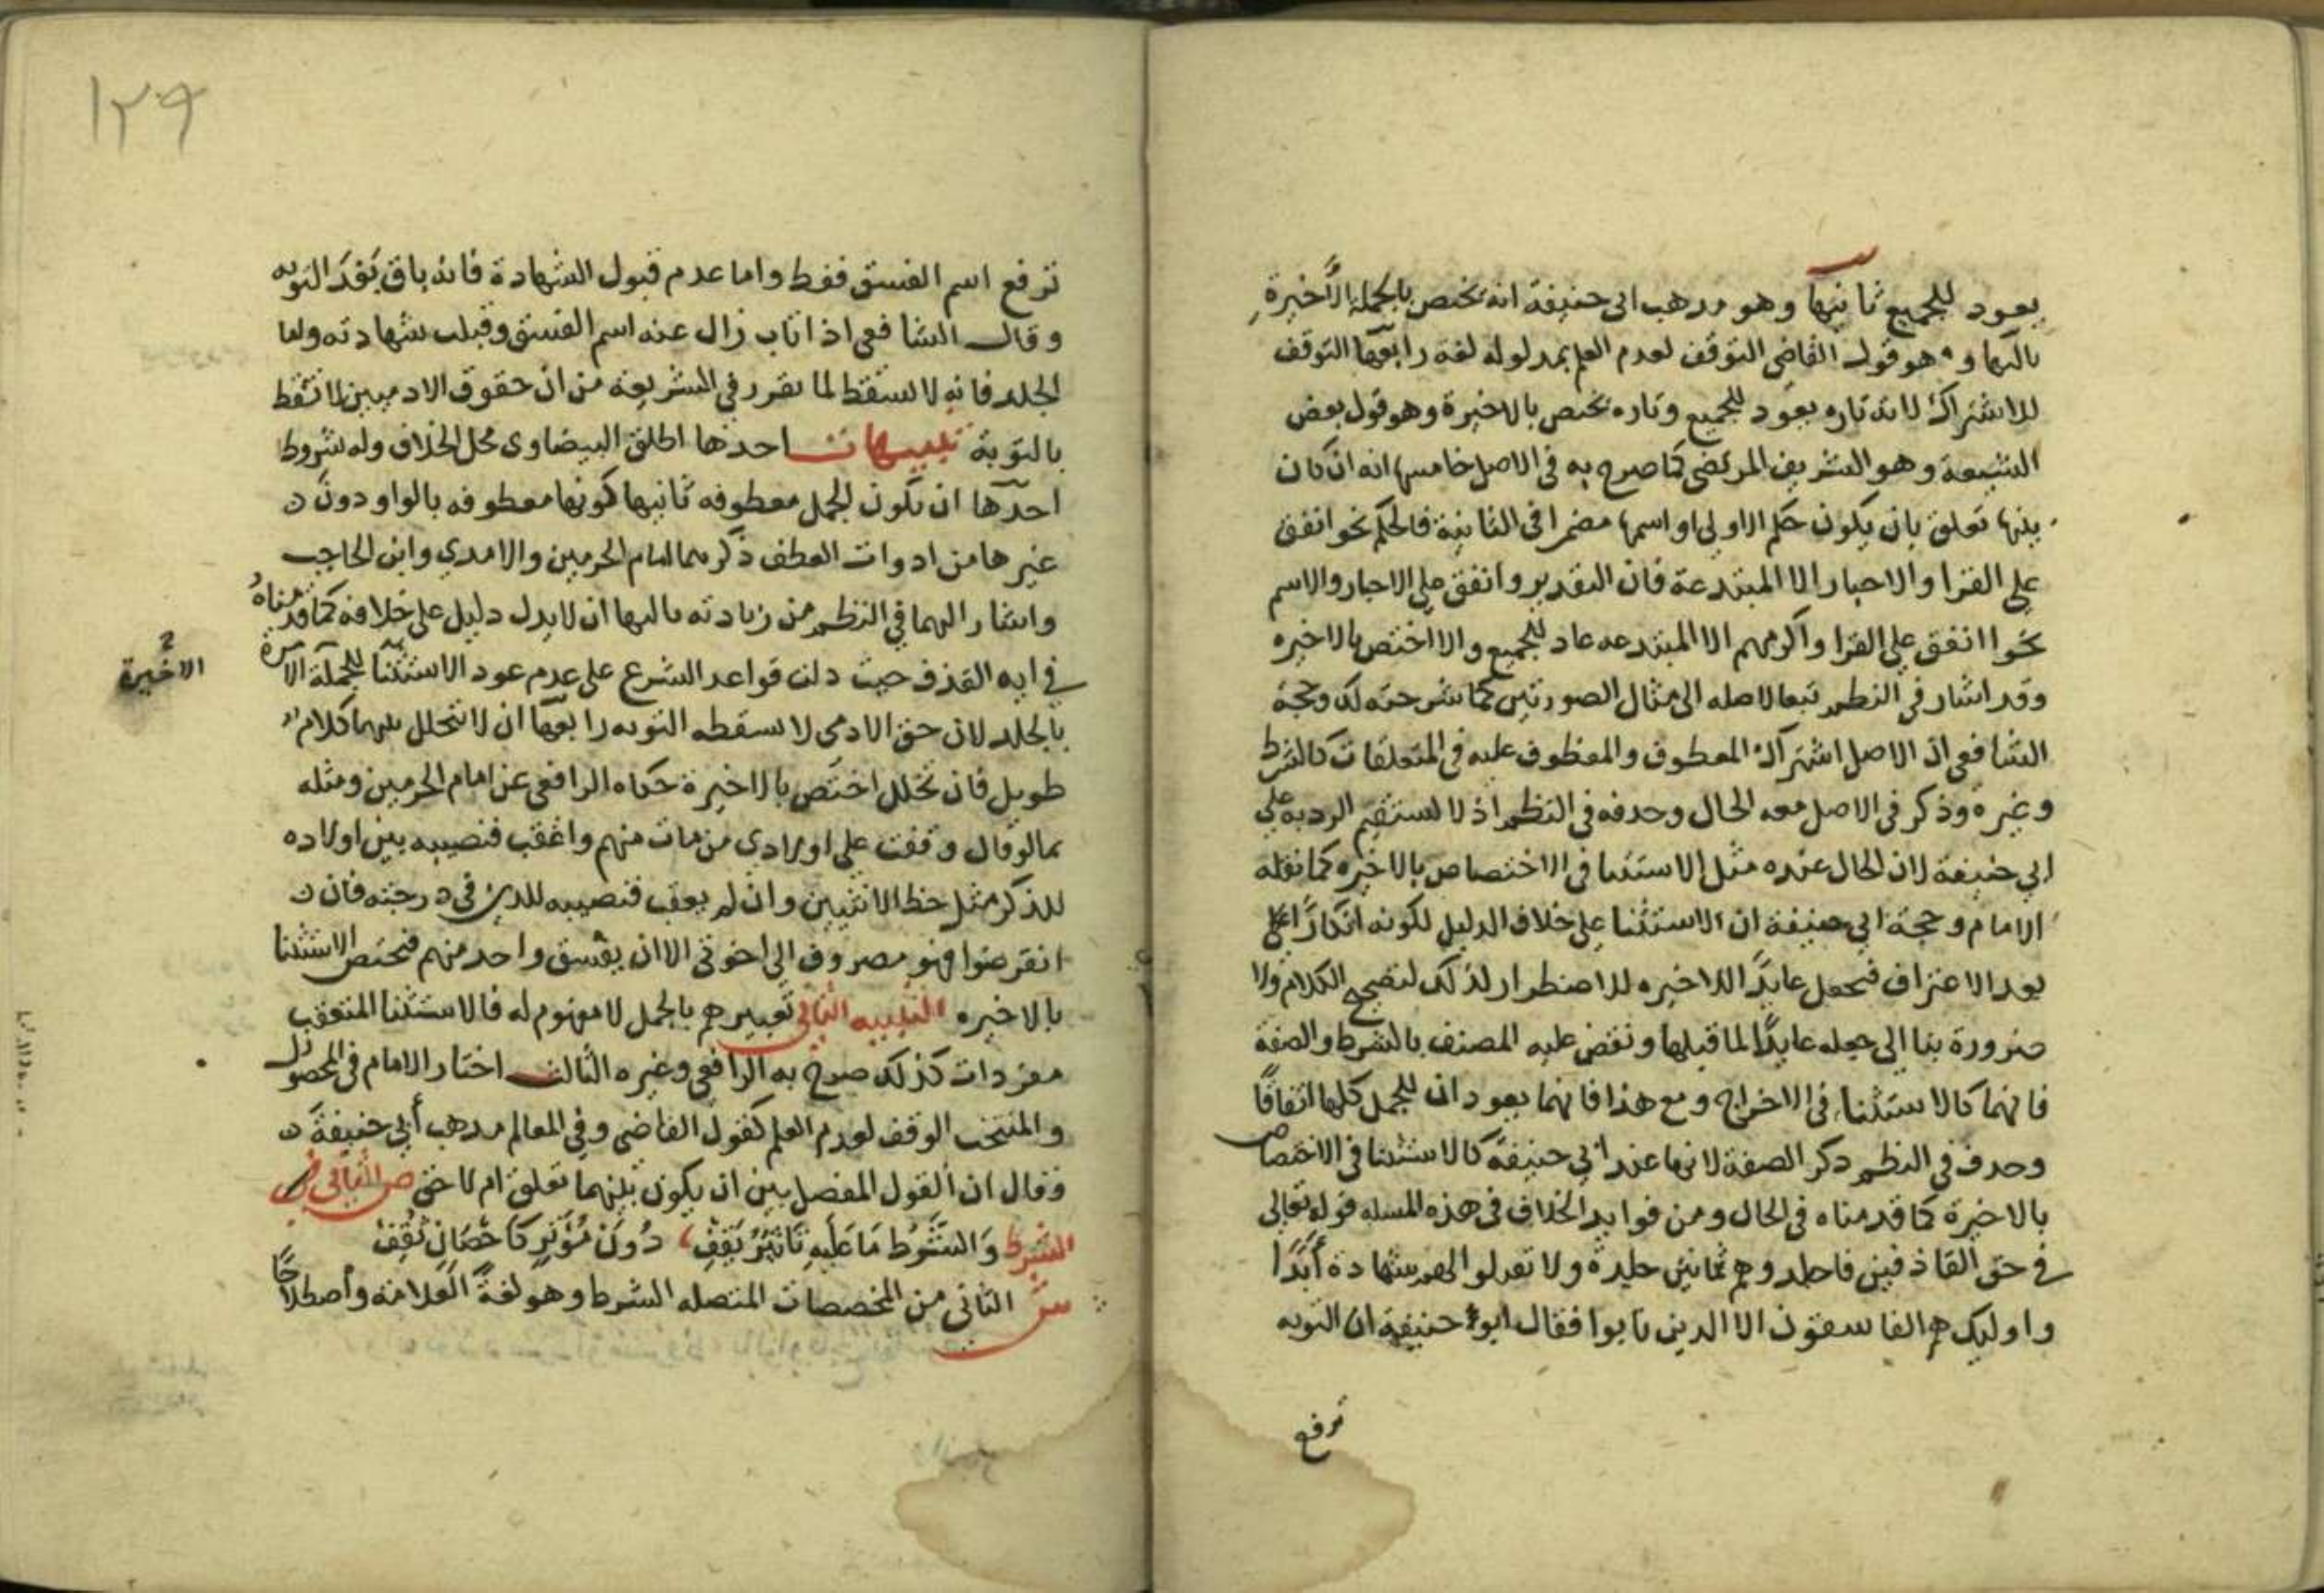 يعود للجميع ثانيها وهو مدهب ابى حنيفة انه يختص بالجملة الأخيرة
ثالثها وهو قول القاضى التوقف لعدم العلم بمدلوله لغة رابعها التوقف
للاشتراك لانه تاره يعود للجميع وتاره يختص بالاخيرة وهو قول بعض
الشيعة وهو الشريف المرتضى كما صرح به فى الاصل خامسها انه ان كان
بينها تعلق بان يكون حكم الاولى او اسمها مضمرا فى الثانية فالحكم نحو اتفق
على القرا والاحبار الا المبتدعة فان التقدير واتفق على الاحبار والاسم
نحوا اتفق على القرا واكرمهم الا المبتدعه عاد للجميع والا اختص بالاخيره
وقد اشار فى النظم تبعا لاصله الى مثال الصورتين كما شرحته لك وحجة
الشافعى ان الاصل اشتراك المعطوف والمعطوف عليه فى المتعلقات كالشرط
وغيره وذكر فى الاصل معه الحال وحدفه فى النظم اذ لا يستقيم الرد به على
ابي حنيفة لان الحال عنده مثل الاستثنا فى الاختصاص بالاخيره كما نقله
الامام وحجة ابي حنيفة ان الاستثنا على خلاف الدليل لكونه انكارًا على
بعد الاعتراف فيجعل عايدًا للاخيره للاضطرار لذلك لتصحيح الكلام ولا
ضرورة بنا الى جعله عايدًا لما قبلها ونقض عليه المصنف بالشرط والصفة
فانهما كالاستثنا فى الاخراج ومع هذا فانهما يعودان للجمل كلها اتفاقًا
وحدف فى النظم دكر الصفة لانها عند ابي حنيفة كالاستثنا فى الاختصاص
بالاخيرة كما قدمناه فى الحال ومن فوايد الخلاف فى هذه المسله قوله تعالى
فى حق القاذفين فاجلدوهم ثمانين جلدة ولا تقبلوا لهم شهادة أبدًا
واوليك هم الفاسقون الا الدين تابوا فقال ابو حنيفة ان التوبه
ترفع
١٢٩
ترفع اسم الفسق فقط واما عدم قبول الشهادة فانه باق بعد التوبه
وقال الشافعى اذا تاب زال عنه اسم الفسق وقبلت شهادته واما
الجلد فانه لا يسقط لما تقرر فى الشريعة من ان حقوق الادميين لا تسقط
بالتوبة تنبيهات احدها اطلق البيضاوى محل الخلاف وله شروط
احدها ان تكون الجمل معطوفه ثانيها كونها معطوفه بالواو دون
غيرها من ادوات العطف ذكرهما امام الحرمين والامدي وابن الحاجب
واشار اليهما في النظم من زيادته ثالثها ان لا يدل دليل على خلافه كما قدمناه
في ايه القذف حيث دلت قواعد الشرع على عدم عود الاستثنا للجملة الآمرة
الاخيرة
بالجلد لان حق الادمى لا تسقطه التوبه رابعها ان لا يتخلل بينهما كلام
طويل فان تخلل اختص بالاخيرة حكاه الرافعى عن امام الحرمين ومثله
بما لو قال وقفت على اولادي من مات منهم واعقب فنصيبه بين اولاده
للذكر مثل حظ الانثيين وان لم يعقب فنصيبه للدين فى درجته فان
انقرضوا فهو مصروف الى اخوتى الا ان يفسق واحد منهم فيختص الاستثنا
بالاخيره التنبيه الثانى تعبيرهم بالجمل لا مفهوم له فالاستثنا المتعقب
مفردات كذلك صرح به الرافعى وغيره الثالث اختار الامام فى المحصول
والمنتخب الوقف لعدم العلم كقول القاضى وفى المعالم مدهب أبي حنيفة
وقال ان القول المفصل بين ان يكون بينهما تعلق ام لا حق ص الثانى
الشرط وَالشَّرْطُ مَا عَلَيهِ تَاثيرٌ يَقِفْ دُونَ مُؤَثِرٍ كَاحْصَانٍ ثُقِفْ
ش الثانى من المخصصات المتصله الشرط وهو لغةً العلامة واصطلاحًا